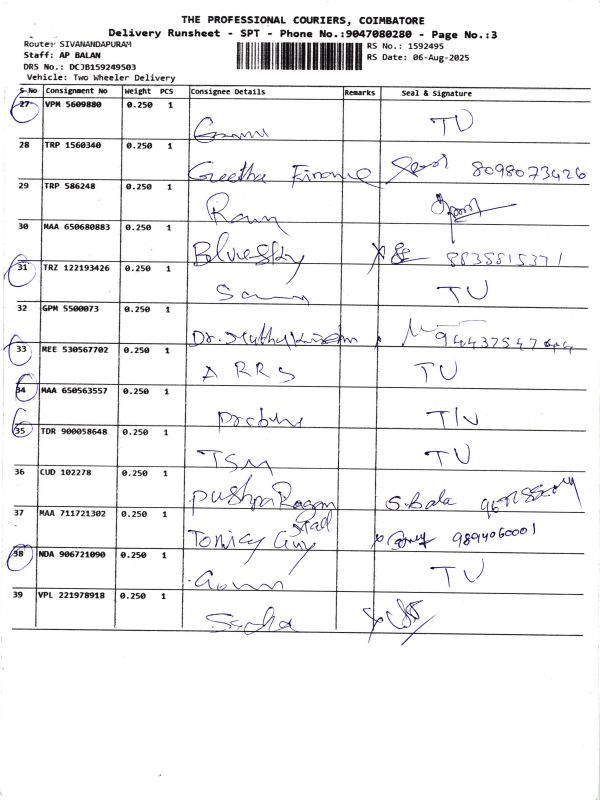 THE PROFESSIONAL COURIERS, COIMBATORE
Delivery Runsheet - SPT - Phone No.:9047080280 - Page No.:3
Route: SIVANANDAPURAM
RS No.: 1592495
Staff: AP BALAN
RS Date: 06-Aug-2025
DRS No.: DCJB159249503
Vehicle: Two Wheeler Delivery
S-No Consignment No Weight PCS Consignee Details Remarks Seal & Signature
27 VPM 5609880 0.250 1 TU
28 TRP 1560340 0.250 1 Geetha Finance 8098073426
29 TRP 586248 0.250 1 Ram
30 MAA 650680883 0.250 1 Bluesky 8838815371
31 TRZ 122193426 0.250 1 TU
32 GPM 5500073 0.250 1 Dr. Muthukrishn
33 MEE 530567702 0.250 1 ARRS TU
34 MAA 650563557 0.250 1 TU
35 TDR 900058648 0.250 1 TSM TU
36 CUD 102278 0.250 1 Pushpa S.Bala
37 MAA 711721302 0.250 1 9894060001
38 NDA 906721090 0.250 1 TU
39 VPL 221978918 0.250 1